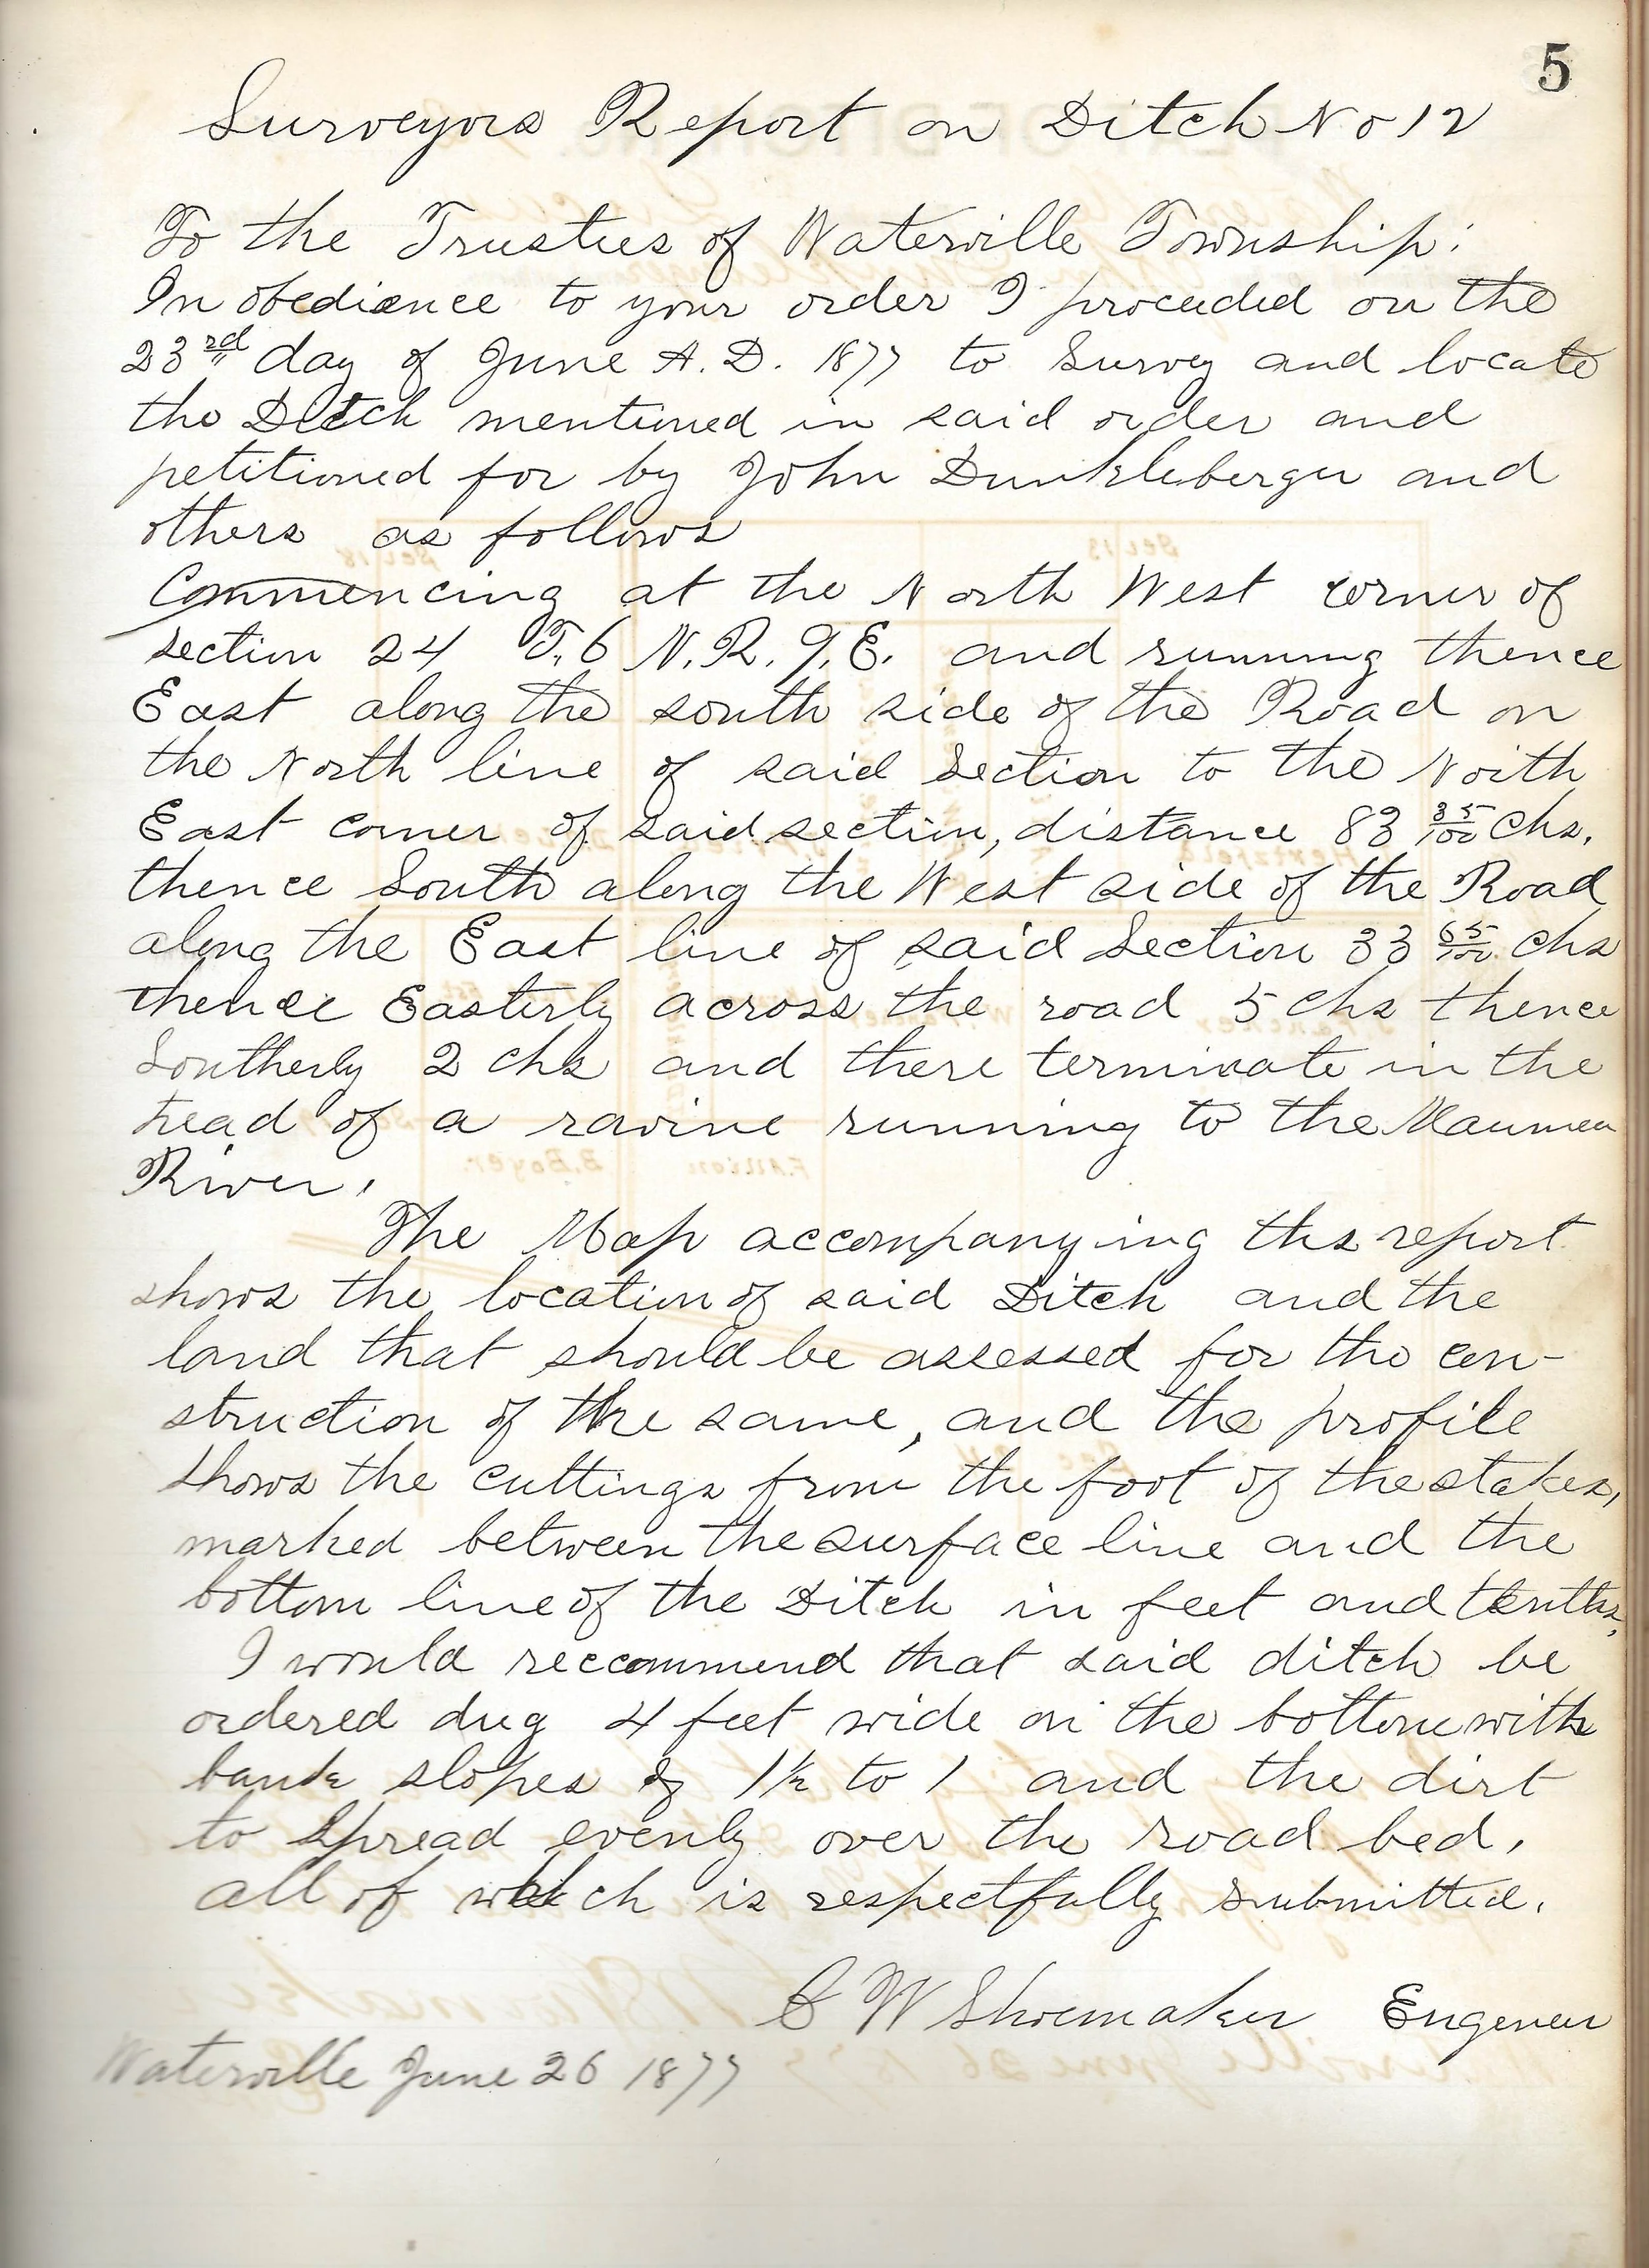 5
Surveyors Report on Ditch No 12
To the Trustees of Waterville Township:
In obedience to your order I proceeded on the
23rd day of June A.D. 1877 to Survey and locate
the Ditch mentioned in said order and
petitioned for by John Dunkleberger and
others as follows
Commencing at the North West corner of
section 24 T. 6 N. R. 9. E. and running thence
East along the south side of the Road on
the North line of said Section to the North
East corner of said section, distance 83 35/100 Chs.
thence South along the West side of the Road
along the East line of said Section 33 65/100 Chs
thence Easterly across the road 5 Chs thence
Southerly 2 chs and there terminate in the
head of a ravine running to the Maumee
River.
The Map accompanying ths report
shows the location of said Ditch and the
land that should be assessed for the con-
struction of the same, and the profile
shows the cuttings from the foot of the stakes,
marked between the surface line and the
bottom line of the Ditch in feet and tenths,
I would reccommend that said ditch be
ordered dug 4 feet wide on the bottom with
bank slopes of 1½ to 1 and the dirt
to Spread evenly over the road bed.
all of which is respectfully submitted.
C W Shoemaker Engeneer
Waterville June 26 1877